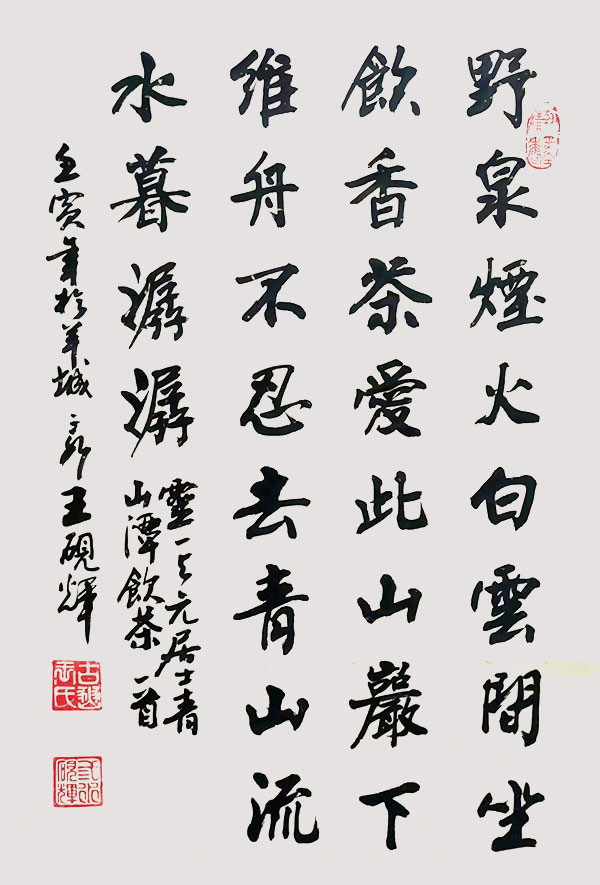 野泉煙火白雲間坐
飲香茶愛此山巖下
維舟不忍去青山流
水暮潺潺
靈一与元居士青
山潭飲茶一首
壬寅年於羊城 王硯輝
硯輝